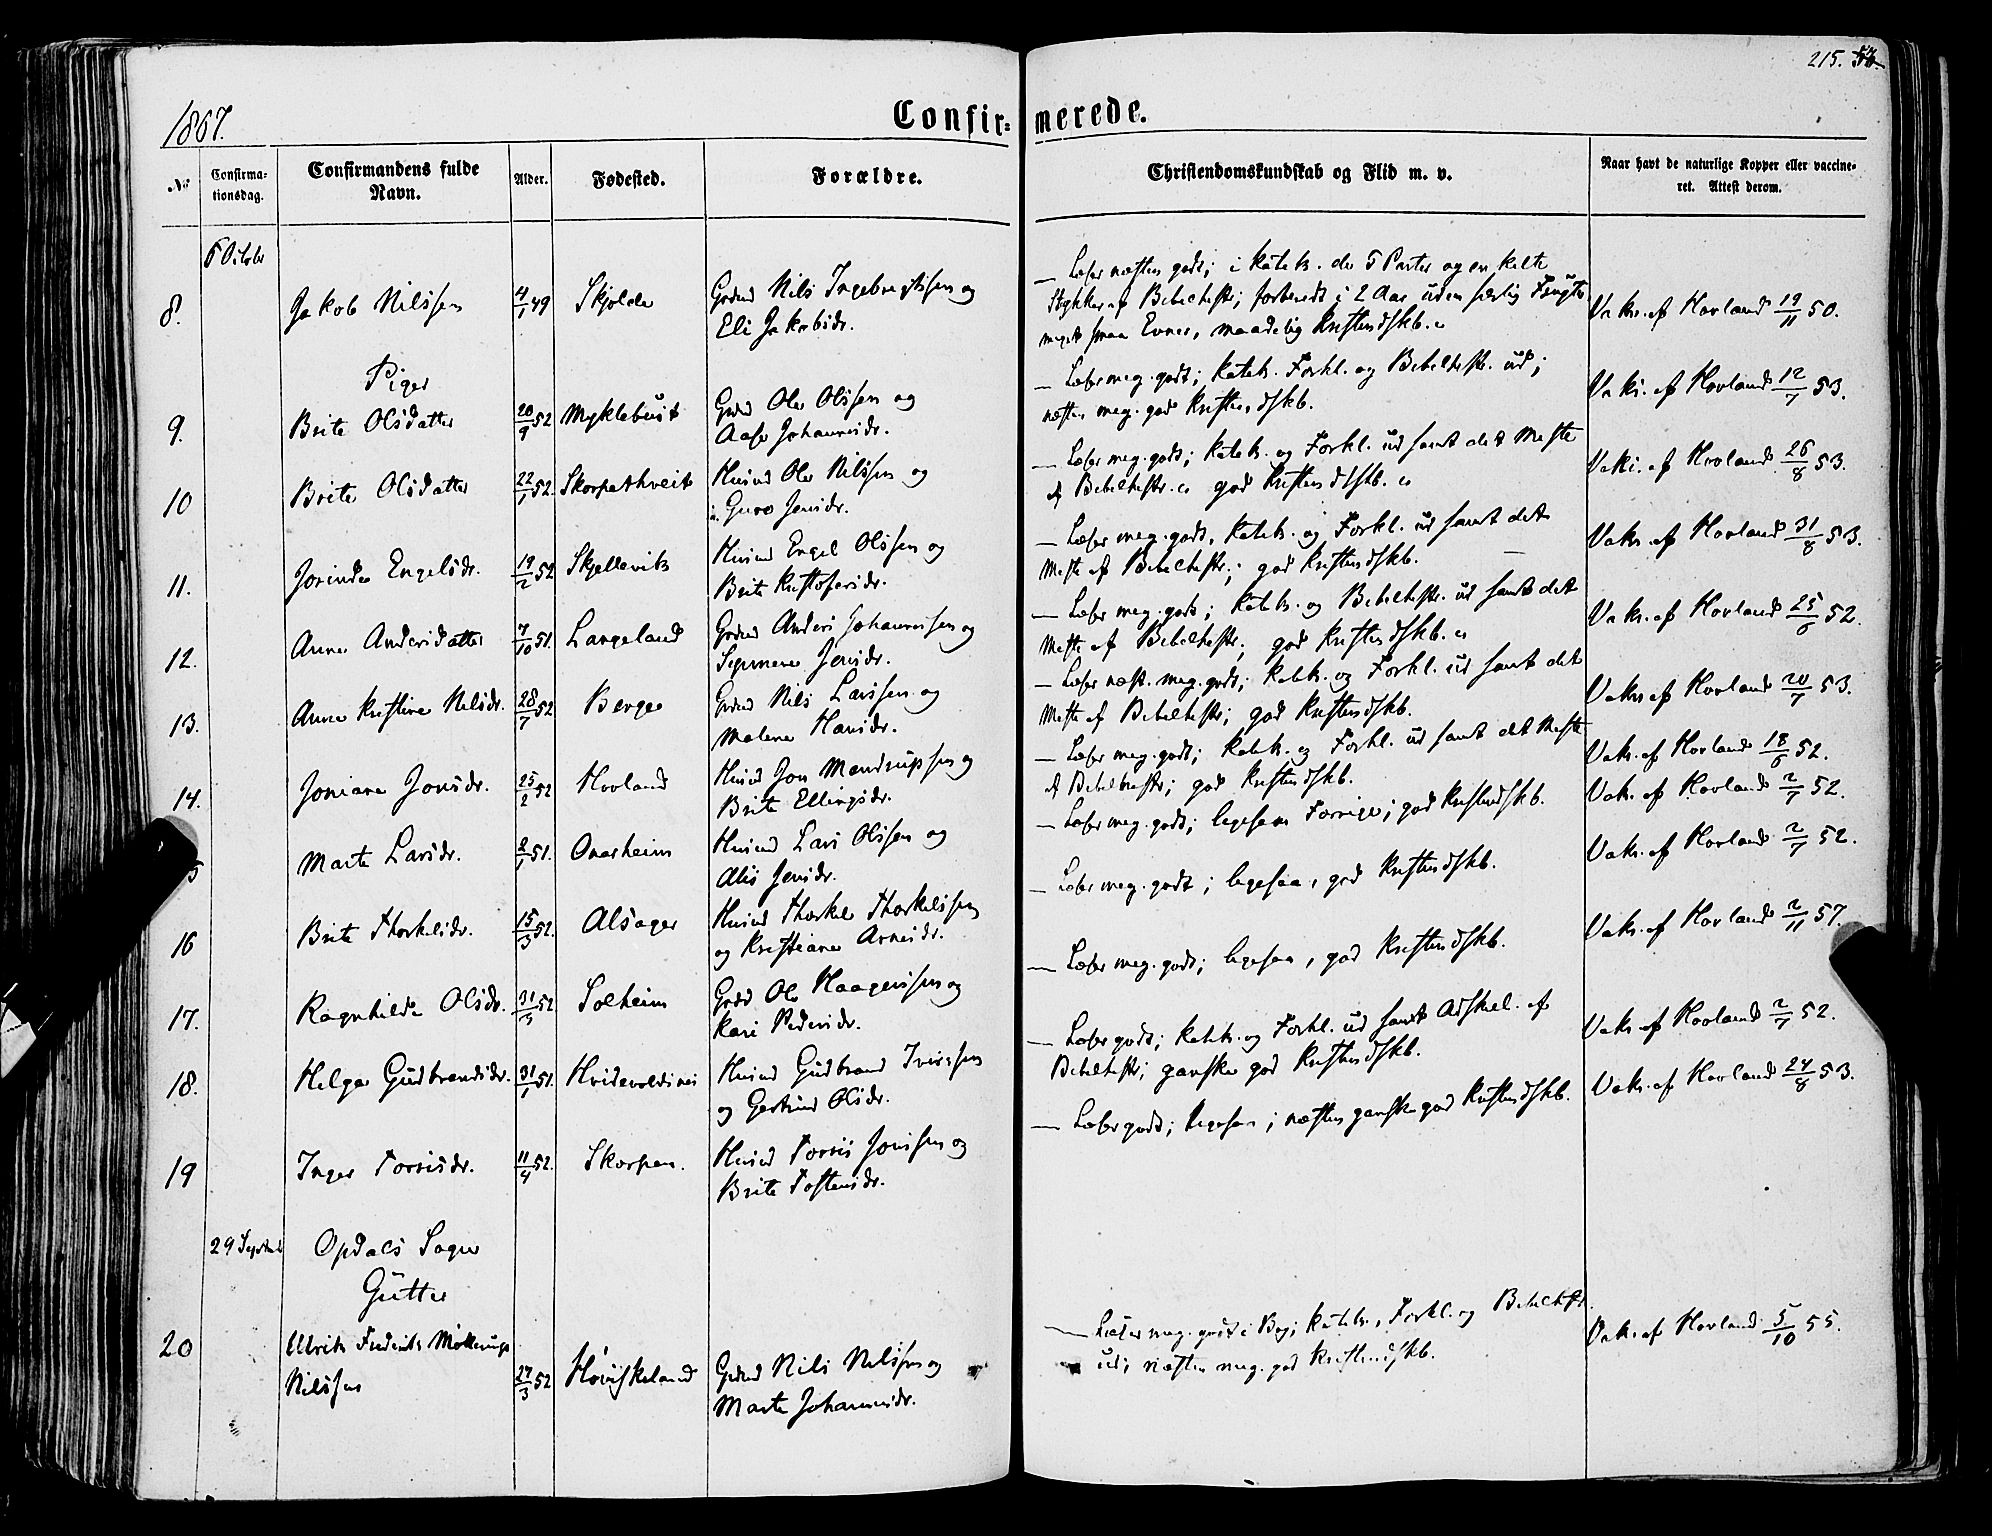 215.
1867.
Confir=merede.
No
Confirma-
tionsdag.
Confirmandens fulde
Navn.
Alder.
Fødested.
Forældre.
Christendomskundskab og Flid m. v.
Naar havt de naturlige Kopper eller vaccine-
ret. Attest derom.
6 Octobr
8. Jakob Nilssen 4/1 49 Skjolde Grdmd Nils Ingebregtssen og
Eli Jakobsdr.
— Læser næsten godt; i Katek. de 5 Parter og enkelte
Stykker af Bibelhistr; forberedt i 2 Aar uden særlig Frugt
meget smaa Evner, maadelig Kristendskb.
Vakc. af Hovland 19/11 50.
Piger
9. Brite Olsdatter 20/9 52 Myklebust Grdmd Ole Olssen og
Aase Johannesdr.
— Læser meg. godt; Katek. Forkl. og Bibelhistr. ud;
næsten meg. god Kristendskb.
Vakc. af Hovland 12/7 53.
10 Brite Olsdatter 22/1 52. Skorpethveit Husmd Ole Nilssen og
Guro Jensdr.
— Læser meg. godt; Katek. og Forkl. ud samt det Meste
af Bibelhistr. god Kristendskb.
Vakc. af Hovland 26/8 53.
11. Jorinda Engelsdr. 19/2 52 Skjellevik Husmd Engel Olssen og
Brite Kristofersdr.
— Læser meg. godt, Katek. og Forkl. ud samt det
Meste af Bibelhistr.; god Kristendskb.
Vakc. af Hovland 31/8 53.
12. Anna Andersdatter 7/10 51. Langeland Grdmd Anders Johannessen og
Synneve Jensdr.
— Læser meg. godt; Katek. og Bibelhistr. ud samt det
Meste af Bibelhistr; god Kristendskb.
Vakc. af Hovland 25/6 52.
13. Anna Kristine Nilsdr. 28/7 52 Berge Grdmd Nils Larssen og
Malene Hansdr.
— Læser næst. meg. godt; Katek. og Forkl. ud samt det
Meste af Bibelhistr; god Kristendskb.
Vakc. af Hovland 20/7 53.
14. Joniane Jonsdr. 25/2 52 Hovland Husmd Jon Mandrupssen og
Brite Ellingsdr.
— Læser meg. godt; Katek. og Forkl. ud samt det Meste
af Bibelhistr; god Kristendskb.
Vakc. af Hovland 18/6 52.
5 Marte Larsdr. 2/1 51. Onarheim Husmd Lars Olssen og
Alis Jensdr.
— Læser meg. godt; ligesaa Forrige; god Kristendskb.
Vakc. af Hovland 2/7 52.
16 Brite Thorkelsdr. 15/3 52. Alsager Husmd Thorkel Thorkelssen
og Kristiane Arnesdr.
— Læser meg. godt; ligesaa, god Kristendskb.
Vakc. af Hovland 2/7 52.
17. Ragnhilda Olsdr. 31/3 52 Solheim Grdmd Ole Haagenssen og
Kari Pedersdr.
— Læser meg. godt; ligesaa, god Kristendskb.
Vakc. af Hovland 2/11 57.
18. Helga Gudbrandsdr. 31/1 51. Husmd Gudbrand Iverssen
og Gertrud Olsdr.
— Læser godt; Katek. og Forkl. ud samt Adskil. af
Bibelhistr; ganske god Kristendskb.
Vakc. af Hovland 2/7 52.
19 Inger Torrisdr. 11/4 52. Skorpen. Husmd Torris Jonssen og
Brite Tostensdr.
— Læser godt; ligesaa; næsten ganske god Kristendskb.
Vakc. af Hovland 24/8 53.
29 Septbr Opdals Sogn
Gutter
20 Ulrik Frederik Møllerup
Nilssen 27/3 52 Høviskeland Grdmd Nils Nilssen og
Marte Johannesdr.
— Læser meg. godt i Bog; Katek., Forkl. og Bibelhistr.
ud; næsten meg. god Kristendskb.
Vakc. af Hovland 5/10 55.